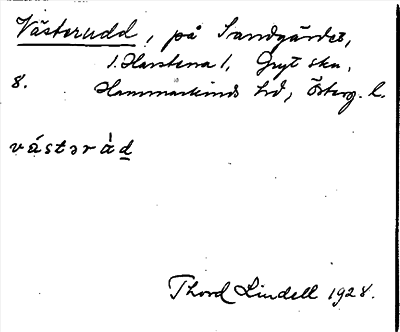 Västerudd, på Sandgärdet,
1. Harstena 1, Gryt skn,
8. Hammarkinds hd, Österg. l.
västəràd
Thord Lindell 1928.